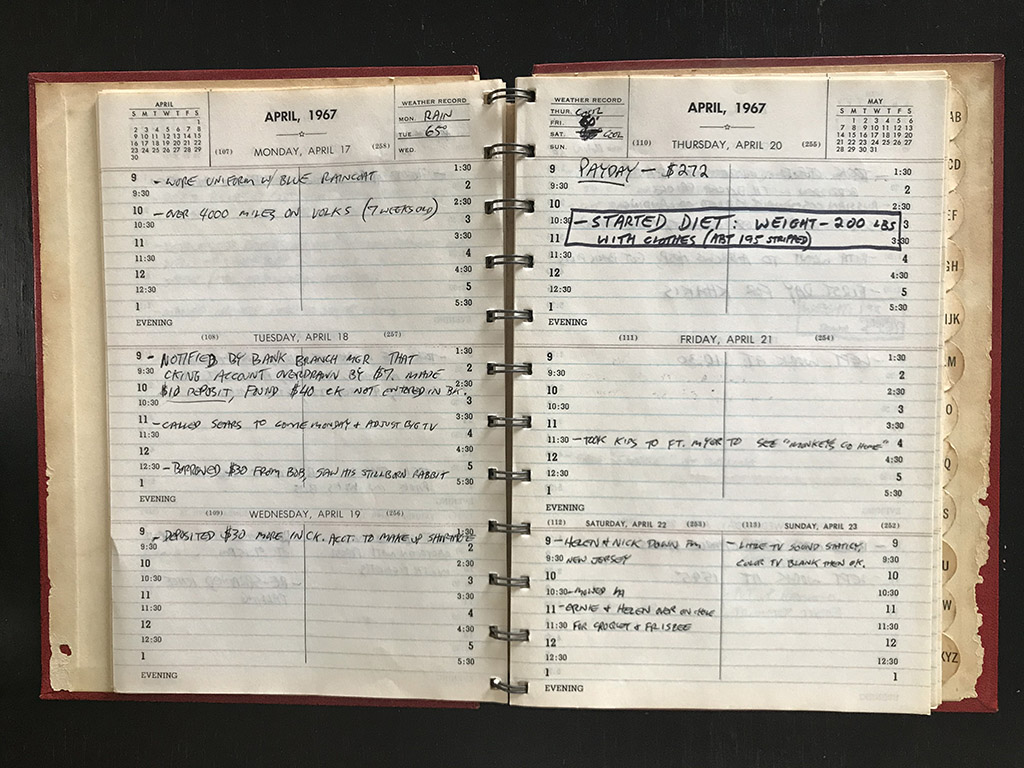 APRIL
S M T W T F S
1
2 3 4 5 6 7 8
9 10 11 12 13 14 15
16 17 18 19 20 21 22
23 24 25 26 27 28 29
30
APRIL, 1967
WEATHER RECORD
MON. RAIN
TUE. 65°
WED.
(107) MONDAY, APRIL 17 (258)
9 - WORE UNIFORM W/ BLUE RAINCOAT 1:30
9:30 2
10 - OVER 4000 MILES ON VOLKS (7 WEEKS OLD) 2:30
10:30 3
11 3:30
11:30 4
12 4:30
12:30 5
1 5:30
EVENING
(108) TUESDAY, APRIL 18 (257)
9 - NOTIFIED BY BANK BRANCH MGR THAT 1:30
9:30 CKING ACCOUNT OVERDRAWN BY $7. MADE 2
10 $10 DEPOSIT, FOUND $40 CK NOT ENTERED IN BK. 2:30
10:30 3
11 - CALLED SEARS TO COME MONDAY & ADJUST TV 3:30
11:30 4
12 4:30
12:30 - BORROWED $30 FROM BOB, SAW HIS STILLBORN RABBIT 5
1 5:30
EVENING
(109) WEDNESDAY, APRIL 19 (256)
9 - DEPOSITED $30 MORE IN CK. ACCT. TO MAKE UP SHORTAGE 1:30
9:30 2
10 2:30
10:30 3
11 3:30
11:30 4
12 4:30
12:30 5
1 5:30
EVENING
WEATHER RECORD
THUR. COOL
FRI.
SAT. COOL
SUN.
APRIL, 1967
MAY
S M T W T F S
1 2 3 4 5 6
7 8 9 10 11 12 13
14 15 16 17 18 19 20
21 22 23 24 25 26 27
28 29 30 31
(110) THURSDAY, APRIL 20 (255)
9 PAYDAY - $272 1:30
9:30 2
10 2:30
10:30 - STARTED DIET: WEIGHT - 200 LBS 3
11 WITH CLOTHES (ABT 195 STRIPPED) 3:30
11:30 4
12 4:30
12:30 5
1 5:30
EVENING
(111) FRIDAY, APRIL 21 (254)
9 1:30
9:30 2
10 2:30
10:30 3
11 3:30
11:30 - TOOK KIDS TO FT. MYER TO SEE "MONKEYS GO HOME" 4
12 4:30
12:30 5
1 5:30
EVENING
(112) SATURDAY, APRIL 22 (253)
9 - HELEN & NICK DOWN FM
9:30 NEW JERSEY
10
10:30 - MOVED IN
11 - ERNIE & HELEN OVER
11:30 FOR CROQUET & FRISBEE
12
12:30
1
EVENING
(113) SUNDAY, APRIL 23 (252)
- LITTLE TV SOUND STATICY, 9
COLOR TV BLANK THEN OK. 9:30
10
10:30
11
11:30
12
12:30
1
AB
CD
EF
GH
IJK
M
O
Q
S
U
W
XYZ